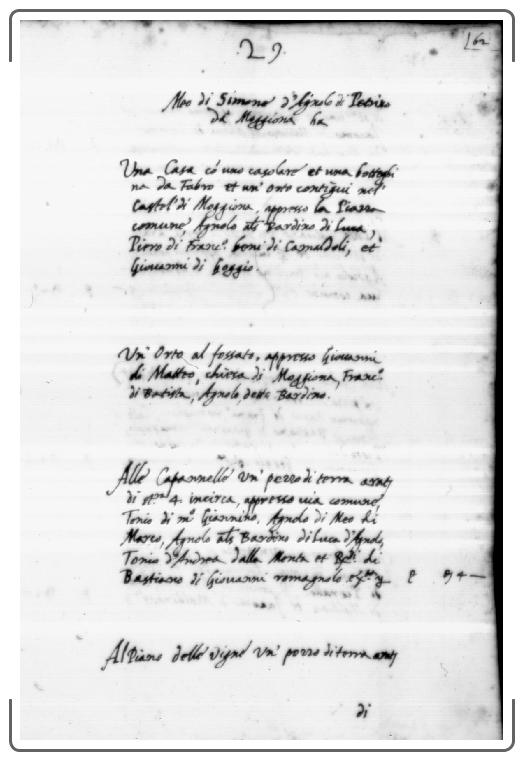 .29.
162
Meo di Simone d'Agnolo di Petrino
da Moggiona ha
Una Casa có uno casolare et una bottighi
na da Fabro et un' orto contigui nel
Castel.º di Moggiona, appresso la Piazza
comune, Agnolo als Bardino di Luca,
Piero di Franc.º beni di Camaldoli, et
Giovanni di Goggio.
Un' Orto al fossato, appresso Giovanni
di Matteo, chiesa di Moggiona, Franc.º
di Batista, Agnolo, detto Bardino.
Alle Capannelle un' pezzo di terra
di st.ra 4. incirca, appresso via comune,
Tonio di m.º Giannino, Agnolo di Meo di
Marco, Agnolo als Bardino di Luca d'Agnolo,
Tonio d'Andrea dalla Monta et di
Bastiano di Giovanni romagnolo
Al Piano delle vigne un' pezzo di terra
di